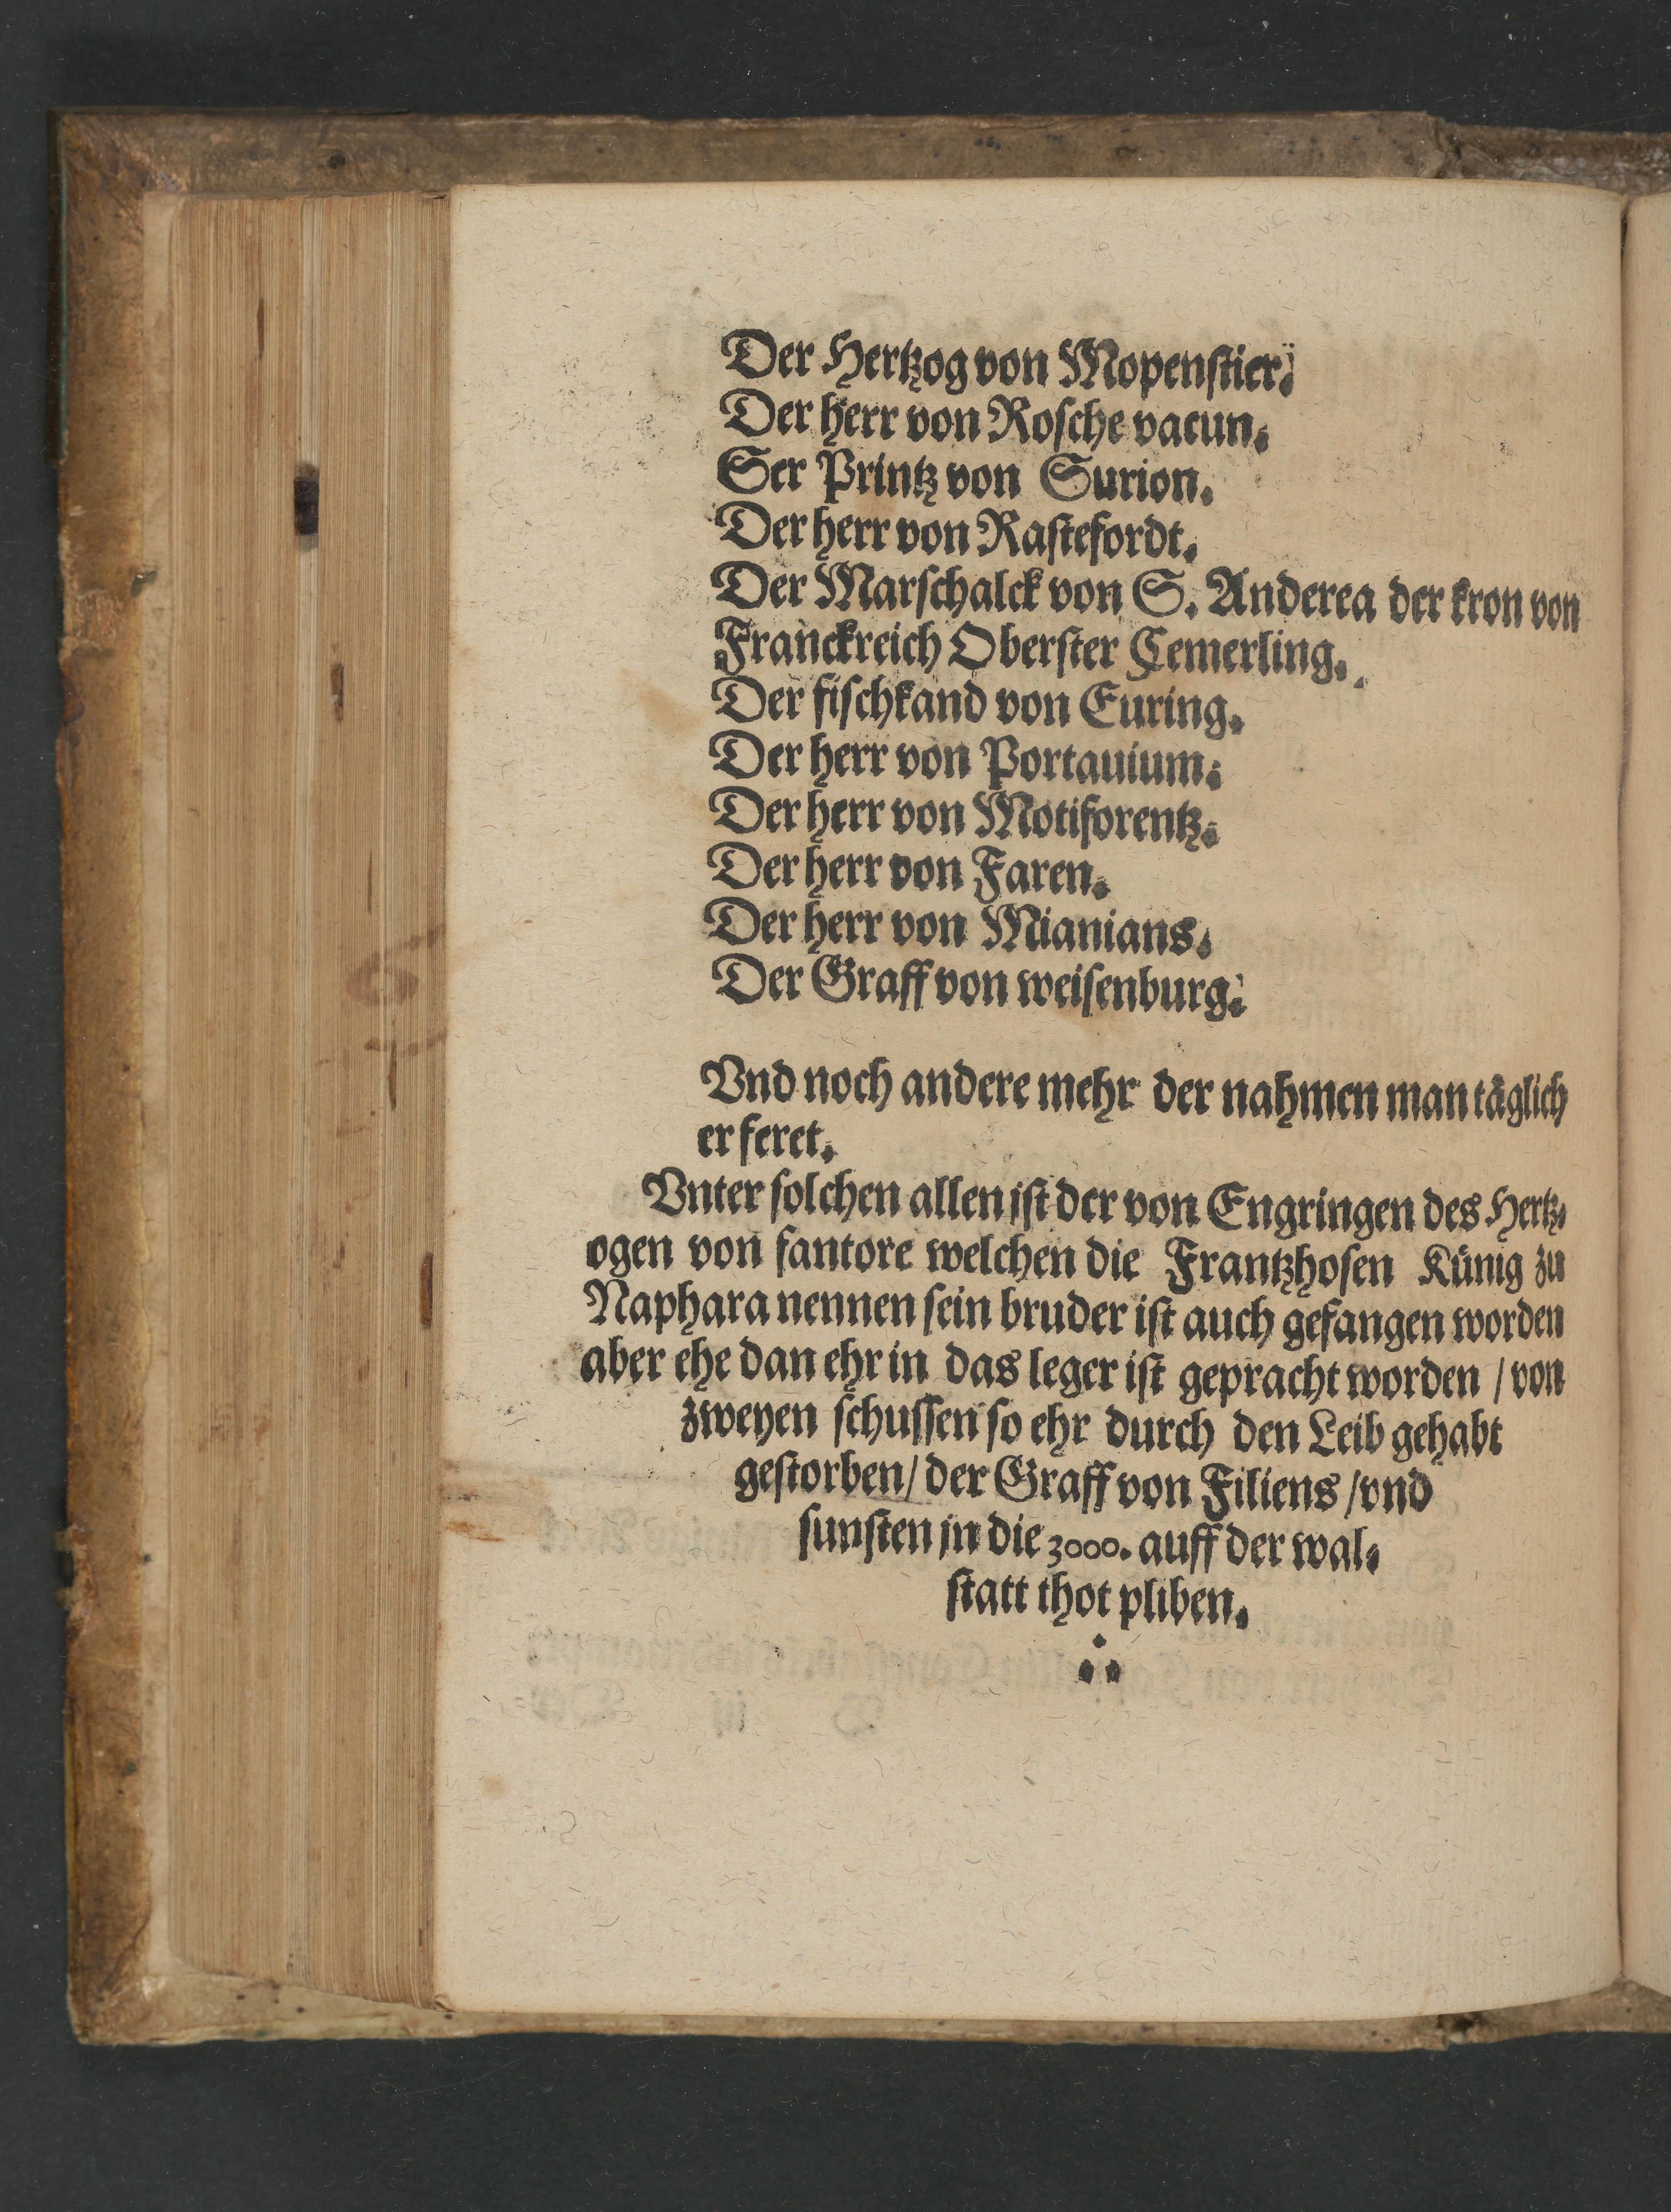 Der Hertzog von Mopenstier.
Der herr von Rosche vacun.
Ser Printz von Surion.
Der herr von Rastefordt.
Der Marschalck von S. Anderea der kron von
Franckreich Oberster Cemerling.
Der fischkand von Euring.
Der herr von Portauium.
Der herr von Motiforentz.
Der herr von Faren.
Der herr von Mianians.
Der Graff von weisenburg.
Vnd noch andere mehr der nahmen man täglich
erferet.
Vnter solchen allen jst der von Engringen des Hertz⸗
ogen von fantore welchen die Frantzhosen Künig zu
Naphara nennen sein bruder ist auch gefangen worden
aber ehe dan ehr in das leger ist gepracht worden / von
zweyen schussen so ehr durch den Leib gehabt
gestorben / der Graff von Filiens / vnd
sunsten jn die 3000. auff der wal⸗
statt thot pliben.